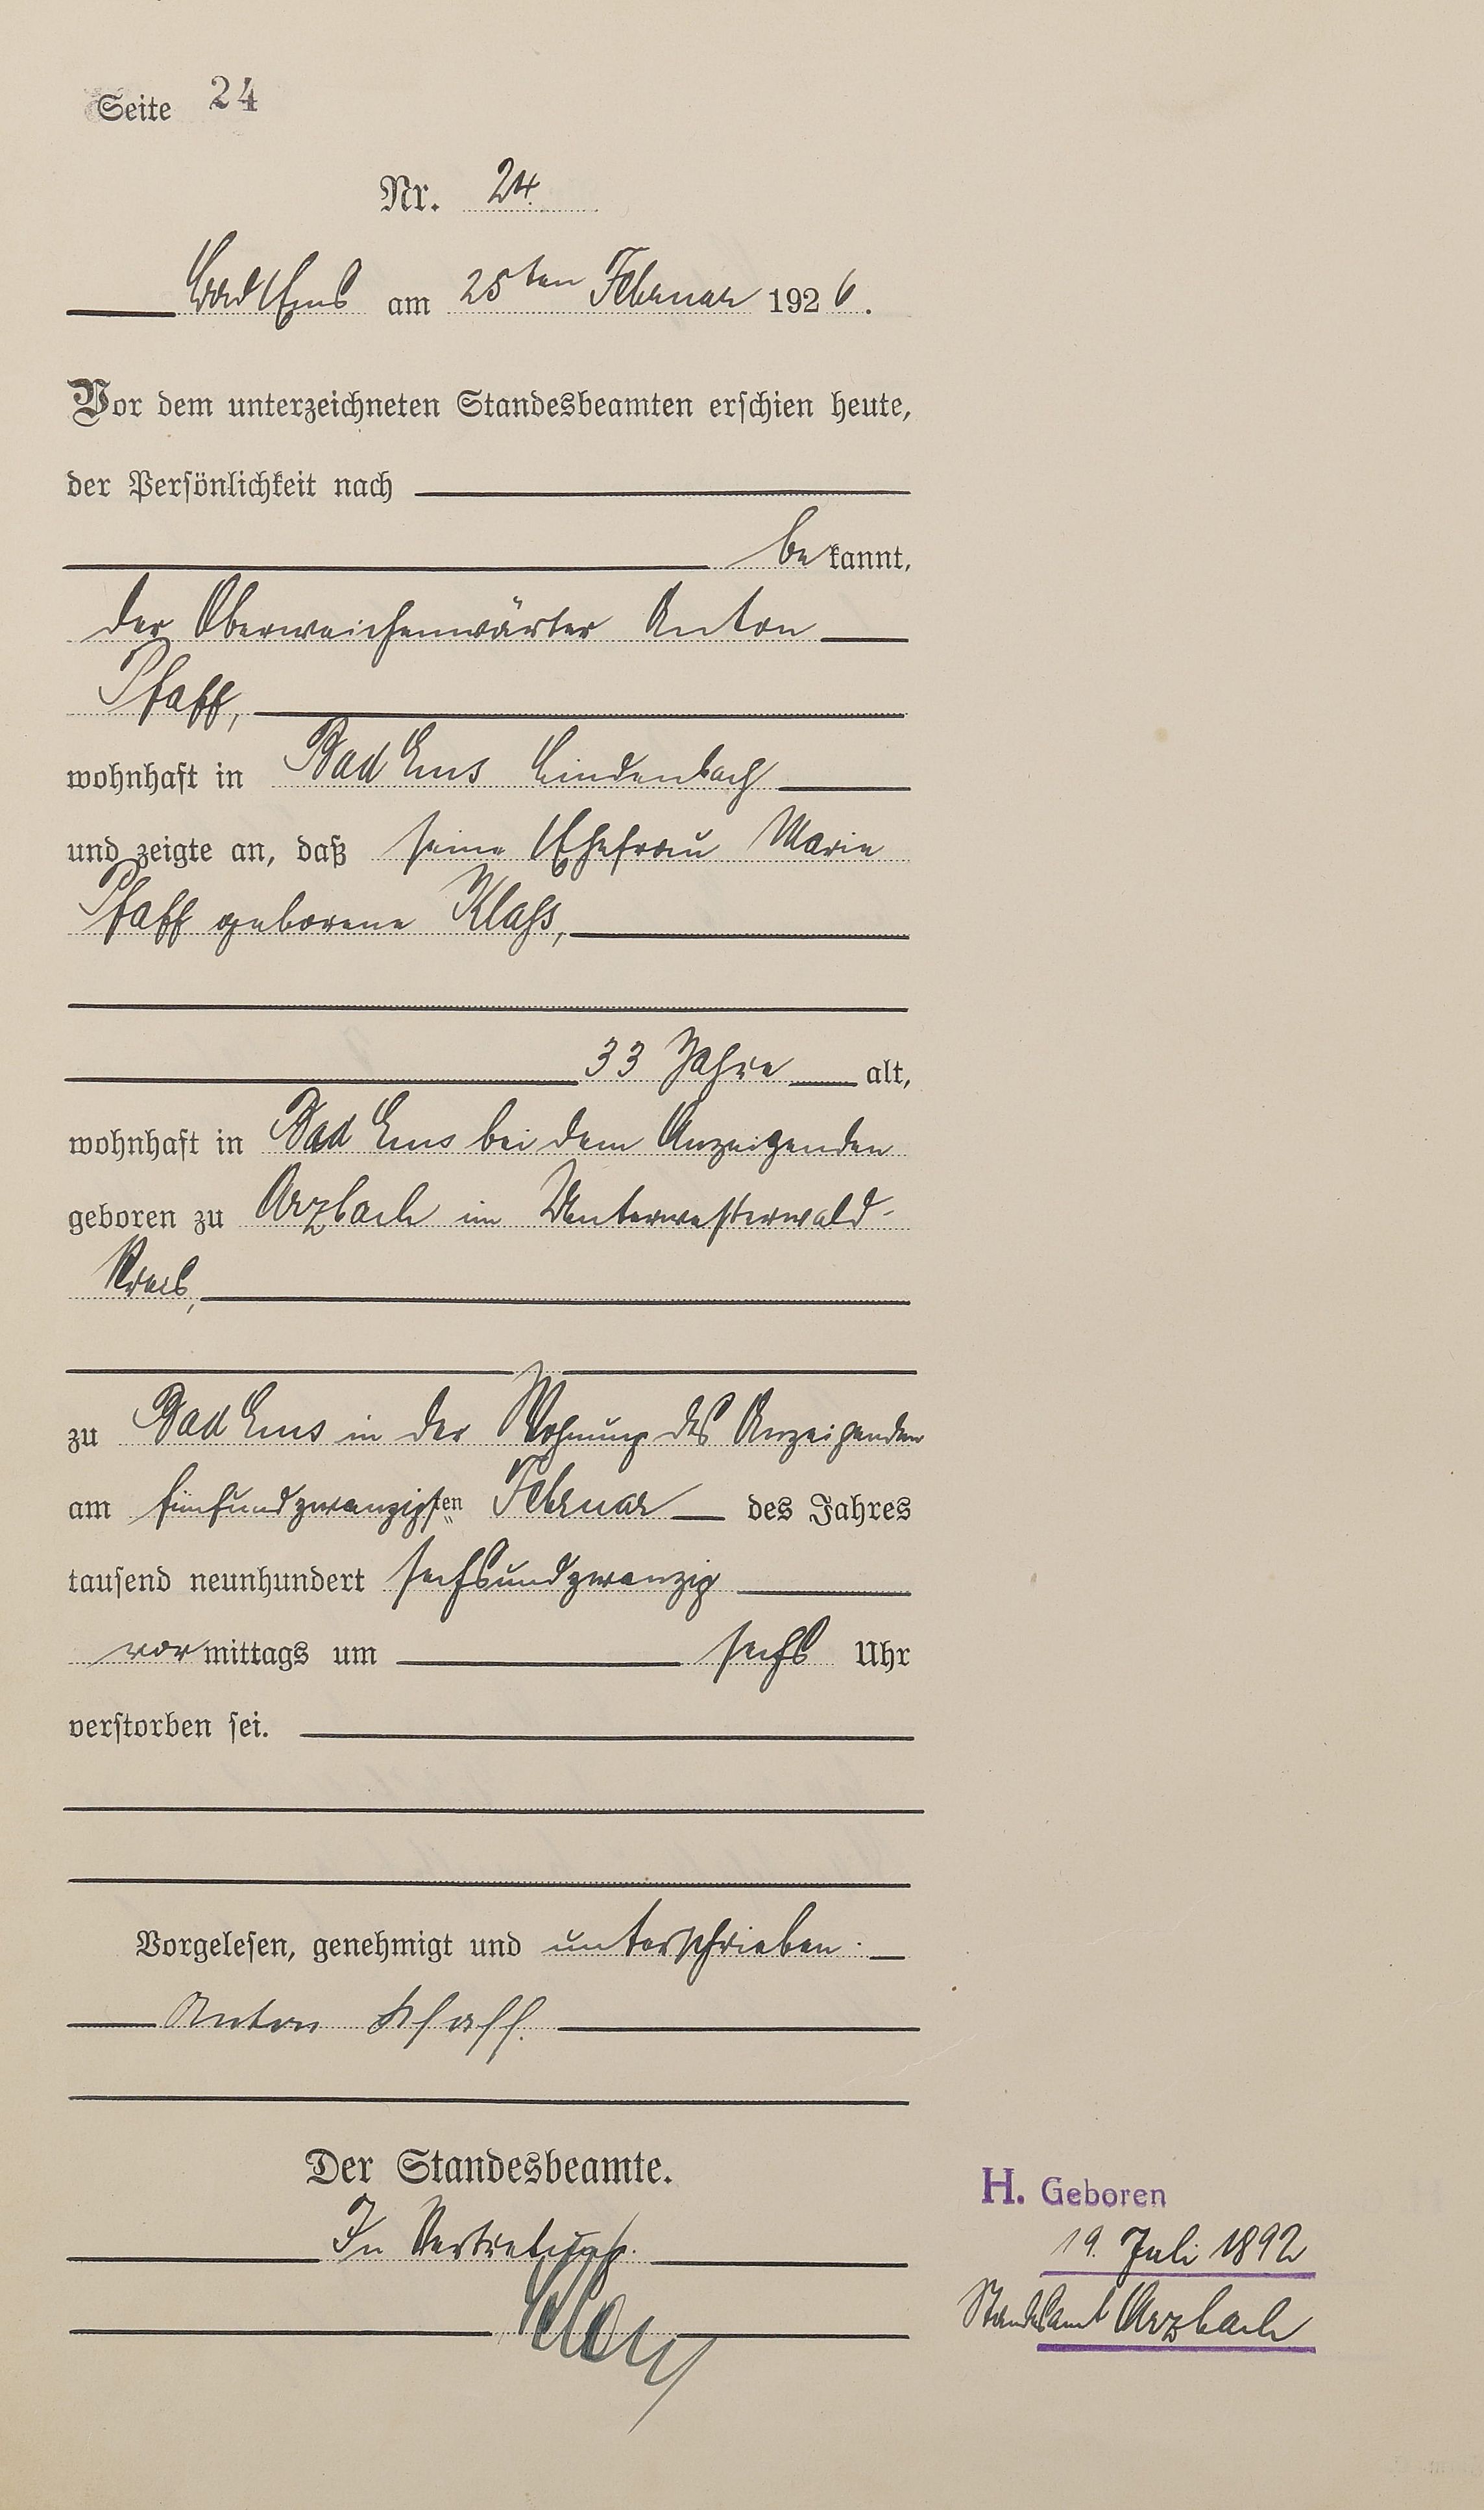 Seite 24
Nr. 24.
Bad Ems am 25ten Februar 1926.
Vor dem unterzeichneten Standesbeamten erschien heute,
der Persönlichkeit nach
bekannt,
der Oberweichenwärter Anton
Pfaff,
wohnhaft in Bad Ems Lindenbach
und zeigte an, daß seine Ehefrau Marie
Pfaff geborene Klaß,
33 Jahre alt,
wohnhaft in Bad Ems bei dem Anzeigenden
geboren zu Arzbach im Unterwesterwald-
Kreis,
zu Bad Ems in der Wohnung des Anzeigenden
am fünfundzwanzigsten Februar des Jahres
tausend neunhundert sechsundzwanzig
vormittags um sechs Uhr
verstorben sei.
Vorgelesen, genehmigt und unterschrieben.
Anton Pfaff.
Der Standesbeamte.
In Vertretung.
H. Geboren
19. Juli 1892
Standesamt Arzbach